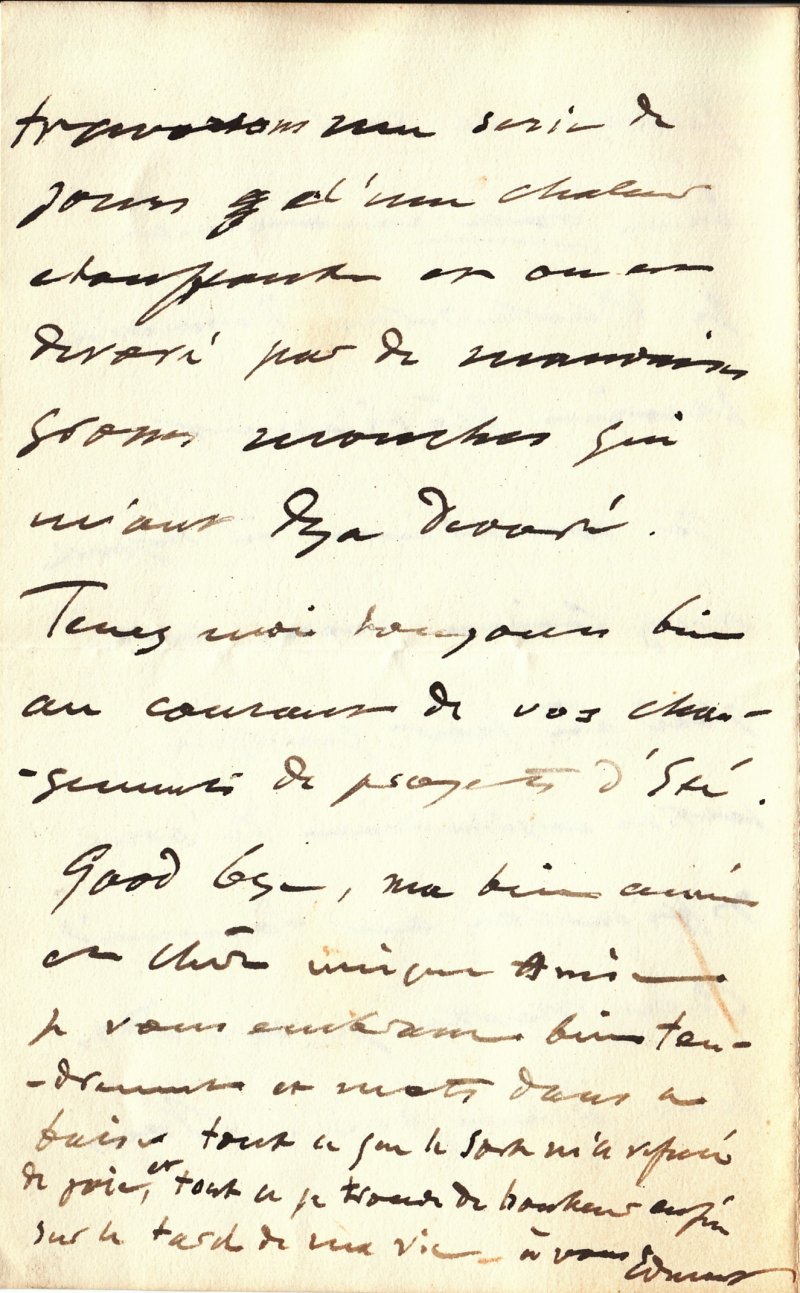 traversons une serie de
jours d'une chaleur
etouffante et on est
devoré par de mauvaises
grosses mouches qui
m'ont deja devoré.
Tenez moi toujours bien
au courant de vos chan-
-gements de projets d'Eté.
Good bye, ma bien aimée
et chère unique Amie
je vous embrasse bien ten-
-drement et mets dans ce
baiser tout ce que le sort m'a refusé
de joie, et tout ce je trouve de bonheur enfin
sur le tard de ma vie - à vous
Edmond